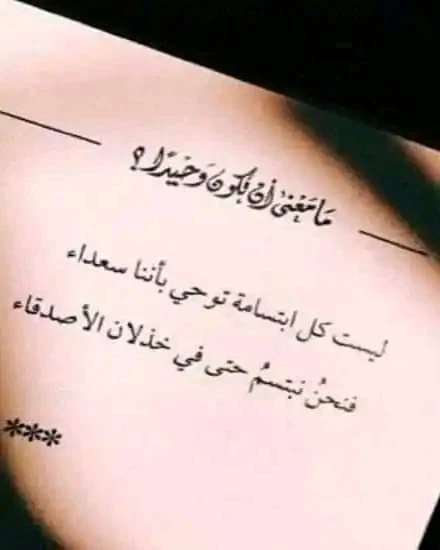 مَا مَعْنَىٰ أَنْ تَكُونَ وَحِيْدًا ؟
ليست كل ابتسامة توحي بأننا سعداء
فنحنُ نبتسمُ حتى في خذلان الأصدقاء
***